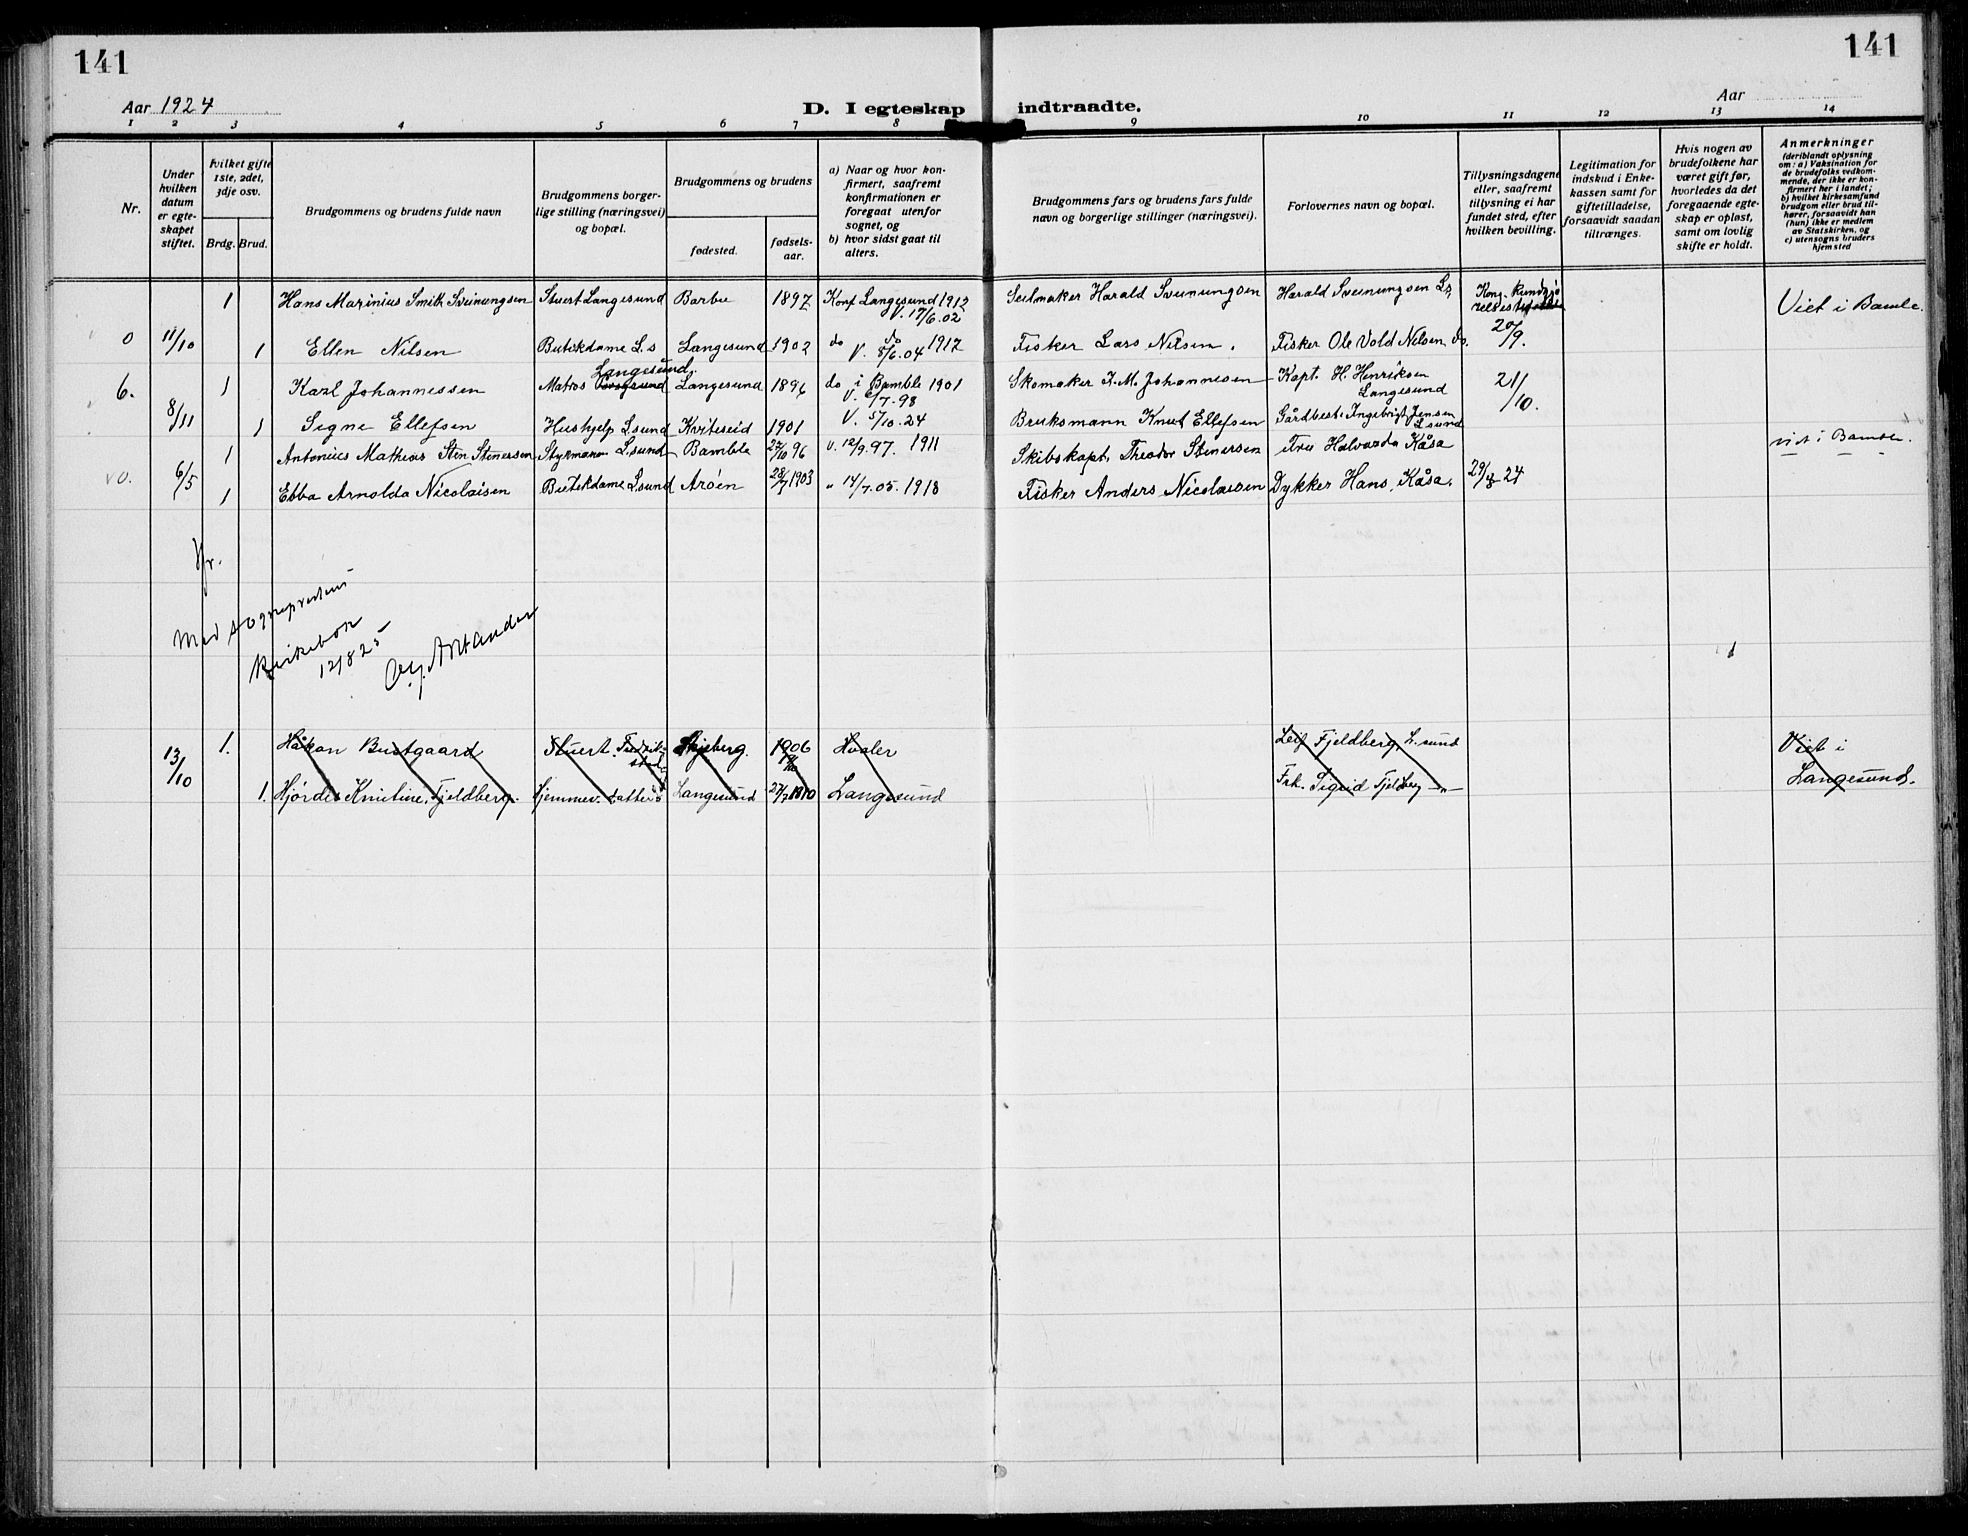 141
141
Aar 1924
D. I egteskap indtraadte.
Aar
1 2 3 4 5 6 7 8 9 10 11 12 13 14
Nr.
Under hvilken datum er egteskapet stiftet.
hvilket gifte 1ste, 2det, 3dje osv.
Brdg. Brud.
Brudgommens og brudens fulde navn
Brudgommens borgerlige stilling (næringsvei) og bopæl.
Brudgommens og brudens
fødested.
fødselsaar.
a) Naar og hvor konfirmert, saafremt konfirmationen er foregaat utenfor sognet, og
b) hvor sidst gaat til alters.
Brudgommens fars og brudens fars fulde navn og borgerlige stillinger (næringsvei).
Forlovernes navn og bopæl.
Tillysningsdagene eller, saafremt tillysning ei har fundet sted, efter hvilken bevilling.
Legitimation for indskud i Enkekassen samt for giftetilladelse, forsaavidt saadan tiltrænges.
Hvis nogen av brudefolkene har været gift før, hvorledes da det foregaaende egteskap er opløst, samt om lovlig skifte er holdt.
Anmerkninger (deriblandt oplysning om: a) Vaksination for de brudefolks vedkommende, der ikke er konfirmert her i landet; b) hvilket kirkesamfund brudgom eller brud tilhører, forsaavidt han (hun) ikke er medlem av Statskirken, og c) utensogns bruders hjemsted
1 Hans Marinius Smith Sveinungsen Stuert Langesund Barbu 1897 Konf Langesund 1912 V. 17/6.02 Seilmaker Harald Sveinungsen Harald Sveinungsen Ls, Kong. kundgjørelse Viet i Bamle.
0 11/10 1 Ellen Nilsen Butikdame L.s Langesund 1902 do do 1917 V. 8/6.04 Fisker Lars Nilsen. Fisker Ole Vold Nilsen do. 20/9.
6. 1 Karl Johannessen Matros Langesund Langesund 1896 do i Bamble 1901 V. 6/7.98 Skomaker J. M. Johannesen Kapt. H. Henriksen Langesund 21/10.
8/11 1 Signe Ellefsen Hushjelp L.sund Kviteseid 1901 V. 5/10.24 Bruksmann Knut Ellefsen Gårdbest. Ingebrigt Jensen L.sund
1 Antonius Mathias Sten Stenersen Styrmann L.sund Bamble 22/10 96 v. 12/9.97. 1911 Skibskapt. Theodor Stenersen Fru Halvarda Kåsa viet i Bamble.
0. 6/5 1 Ebba Arnolda Nicolaisen Butikdame L.sund Arøen 28/7 1903 " 14/7.05. 1918 Fisker Anders Nicolaisen Dykker Hans Kåsa. 29/3 24
Med sogneprestens
kirkebok
12/8 25
13/10 1. Håkon Bustgaard Stuert. Fredrikstad Skjeberg. 1906 Hvaler Leif Fjeldberg, L.sund Viet i
1. Hjørdis Kristine Fjeldberg. Hjemmev. datter Langesund 27/7 1910 Langesund Frk. Sigrid Fjeldberg —"— Langesund.